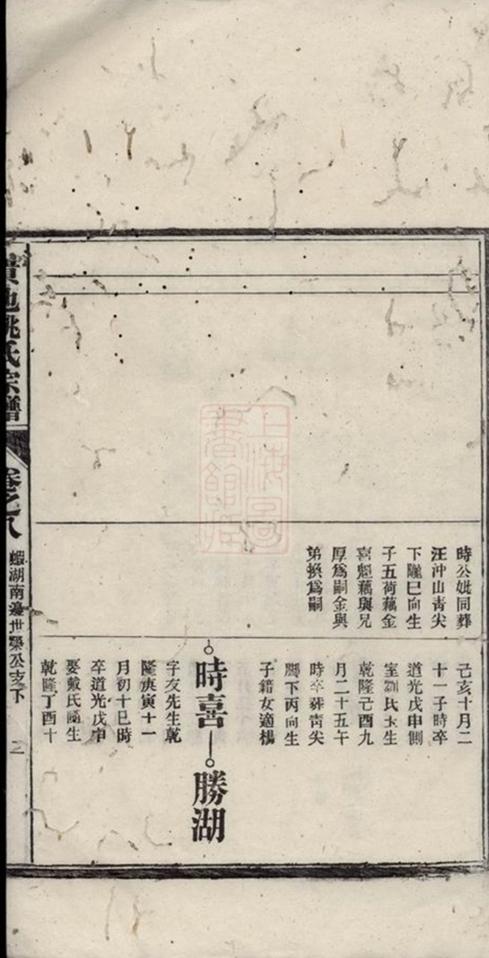 時公妣同葬
汪沖山靑尖
下隴巳向生
子五荷藕金
喜魁藕與兄
厚爲嗣金與
弟換爲嗣
己亥十月二
十一子時卒
道光戊申側
室劉氏玉生
乾隆己酉九
月二十五午
時卒葬靑尖
脚下丙向生
子籍女適楊
時喜
勝湖
字友先生乾
隆庚寅十一
月初十巳時
卒道光戊申
娶戴氏隨生
乾隆丁酉十
池姚氏宗譜
卷之八
蝦湖南邊世榮公支下
上海圖書館藏